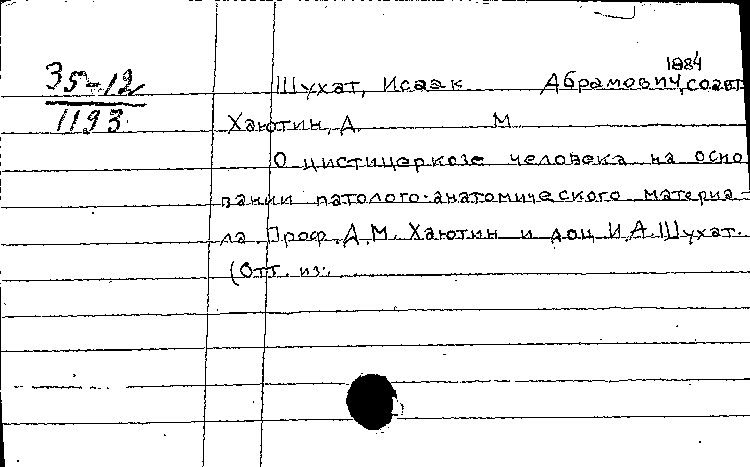 1884
35-12
Шухат, Исаак Абрамович, соавт.
1193
Хаютин, Д. М.
О цистицеркозе человека на осно
вании патолого-анатомического материа-
ла. Проф. Д. М. Хаютин и доц. И. А. Шухат.
(Отт. из: